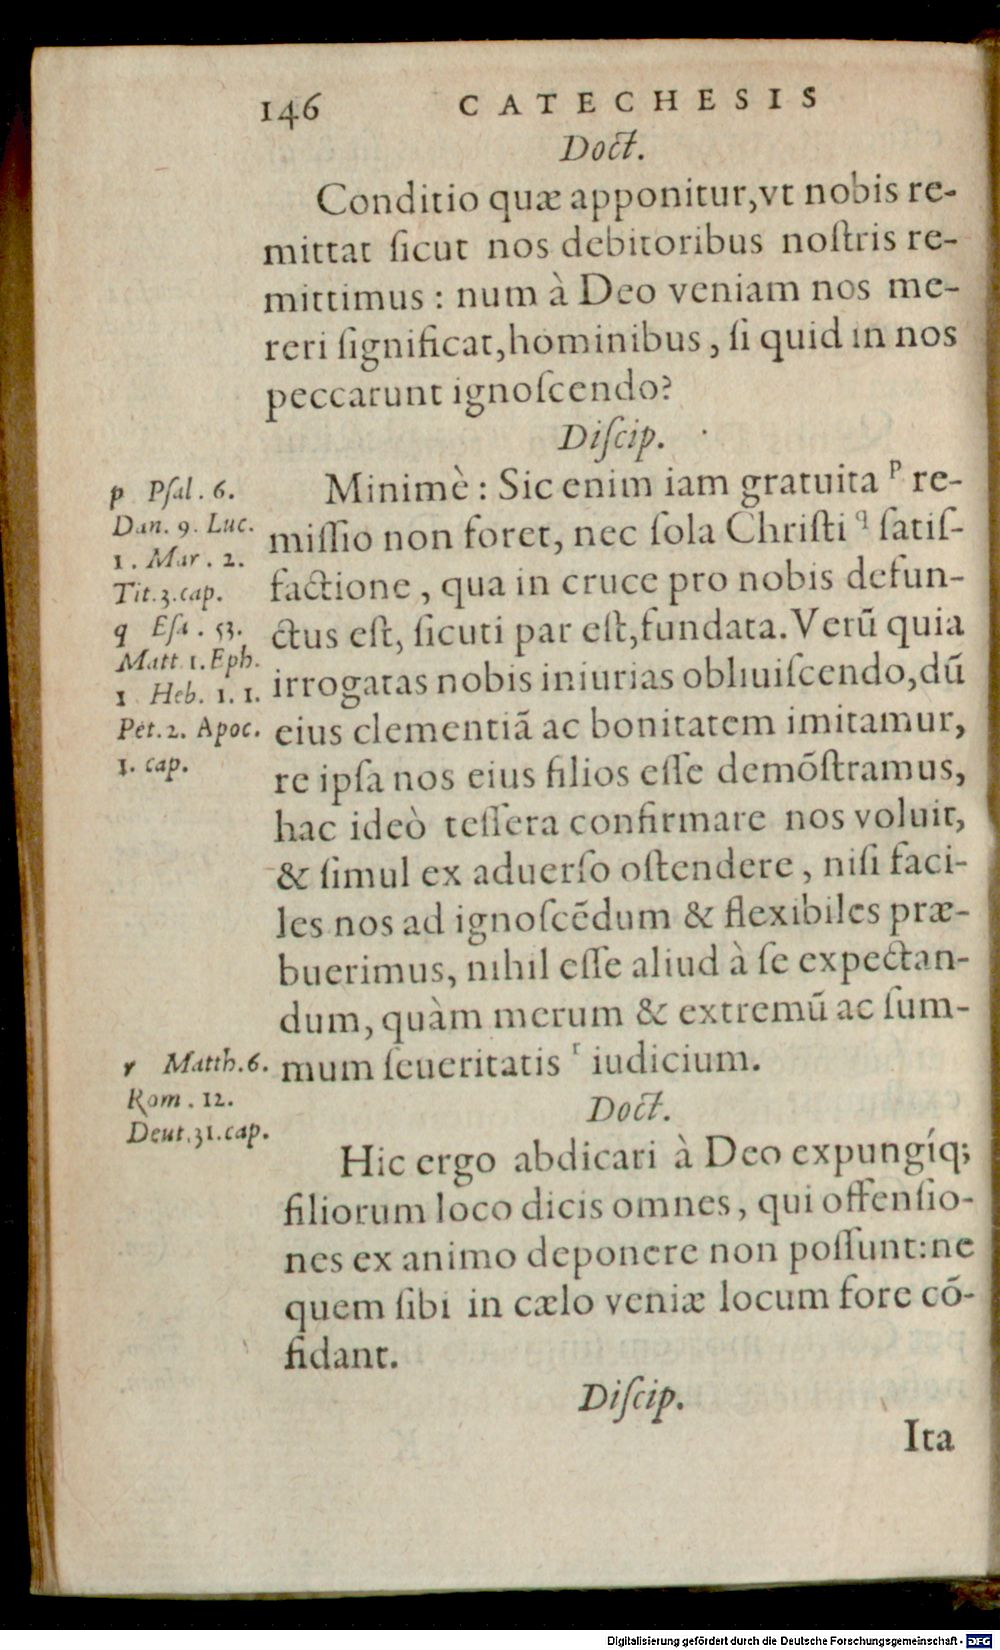 146 CATECHESIS
Doct.
Conditio quæ apponitur,vt nobis re-
mittat ſicut nos debitoribus noſtris re-
mittimus : num à Deo veniam nos me-
reri ſignificat,hominibus , ſi quid in nos
peccarunt ignoſcendo?
Diſcip.
Minimè : Sic enim iam gratuita p re-
miſſio non foret, nec ſola Chriſti q ſatiſ-
factione , qua in cruce pro nobis defun-
ctus eſt, ſicuti par eſt,fundata. Verũ quia
irrogatas nobis iniurias obliuiſcendo,dũ
eius clementiã ac bonitatem imitamur,
re ipſa nos eius filios eſſe demõſtramus,
hac ideò teſſera confirmare nos voluit,
& ſimul ex aduerſo oſtendere , niſi faci-
les nos ad ignoſcẽdum & flexibiles præ-
buerimus, nihil eſſe aliud à ſe expectan-
dum, quàm merum & extremũ ac ſum-
mum ſeueritatis r iudicium.
Doct.
Hic ergo abdicari à Deo expungíq;
filiorum loco dicis omnes, qui offenſio-
nes ex animo deponere non poſſunt:ne
quem ſibi in cælo veniæ locum fore cõ-
fidant.
Diſcip.
Ita
p Pſal. 6.
Dan. 9. Luc.
1. Mar. 2.
Tit.3.cap.
q Eſa. 53.
Matt 1.Eph.
1 Heb. 1. 1.
Pet.2. Apoc.
1. cap.
r Matth.6.
Rom. 12.
Deut.31.cap.
Digitalisierung gefördert durch die Deutsche Forschungsgemeinschaft - DFG